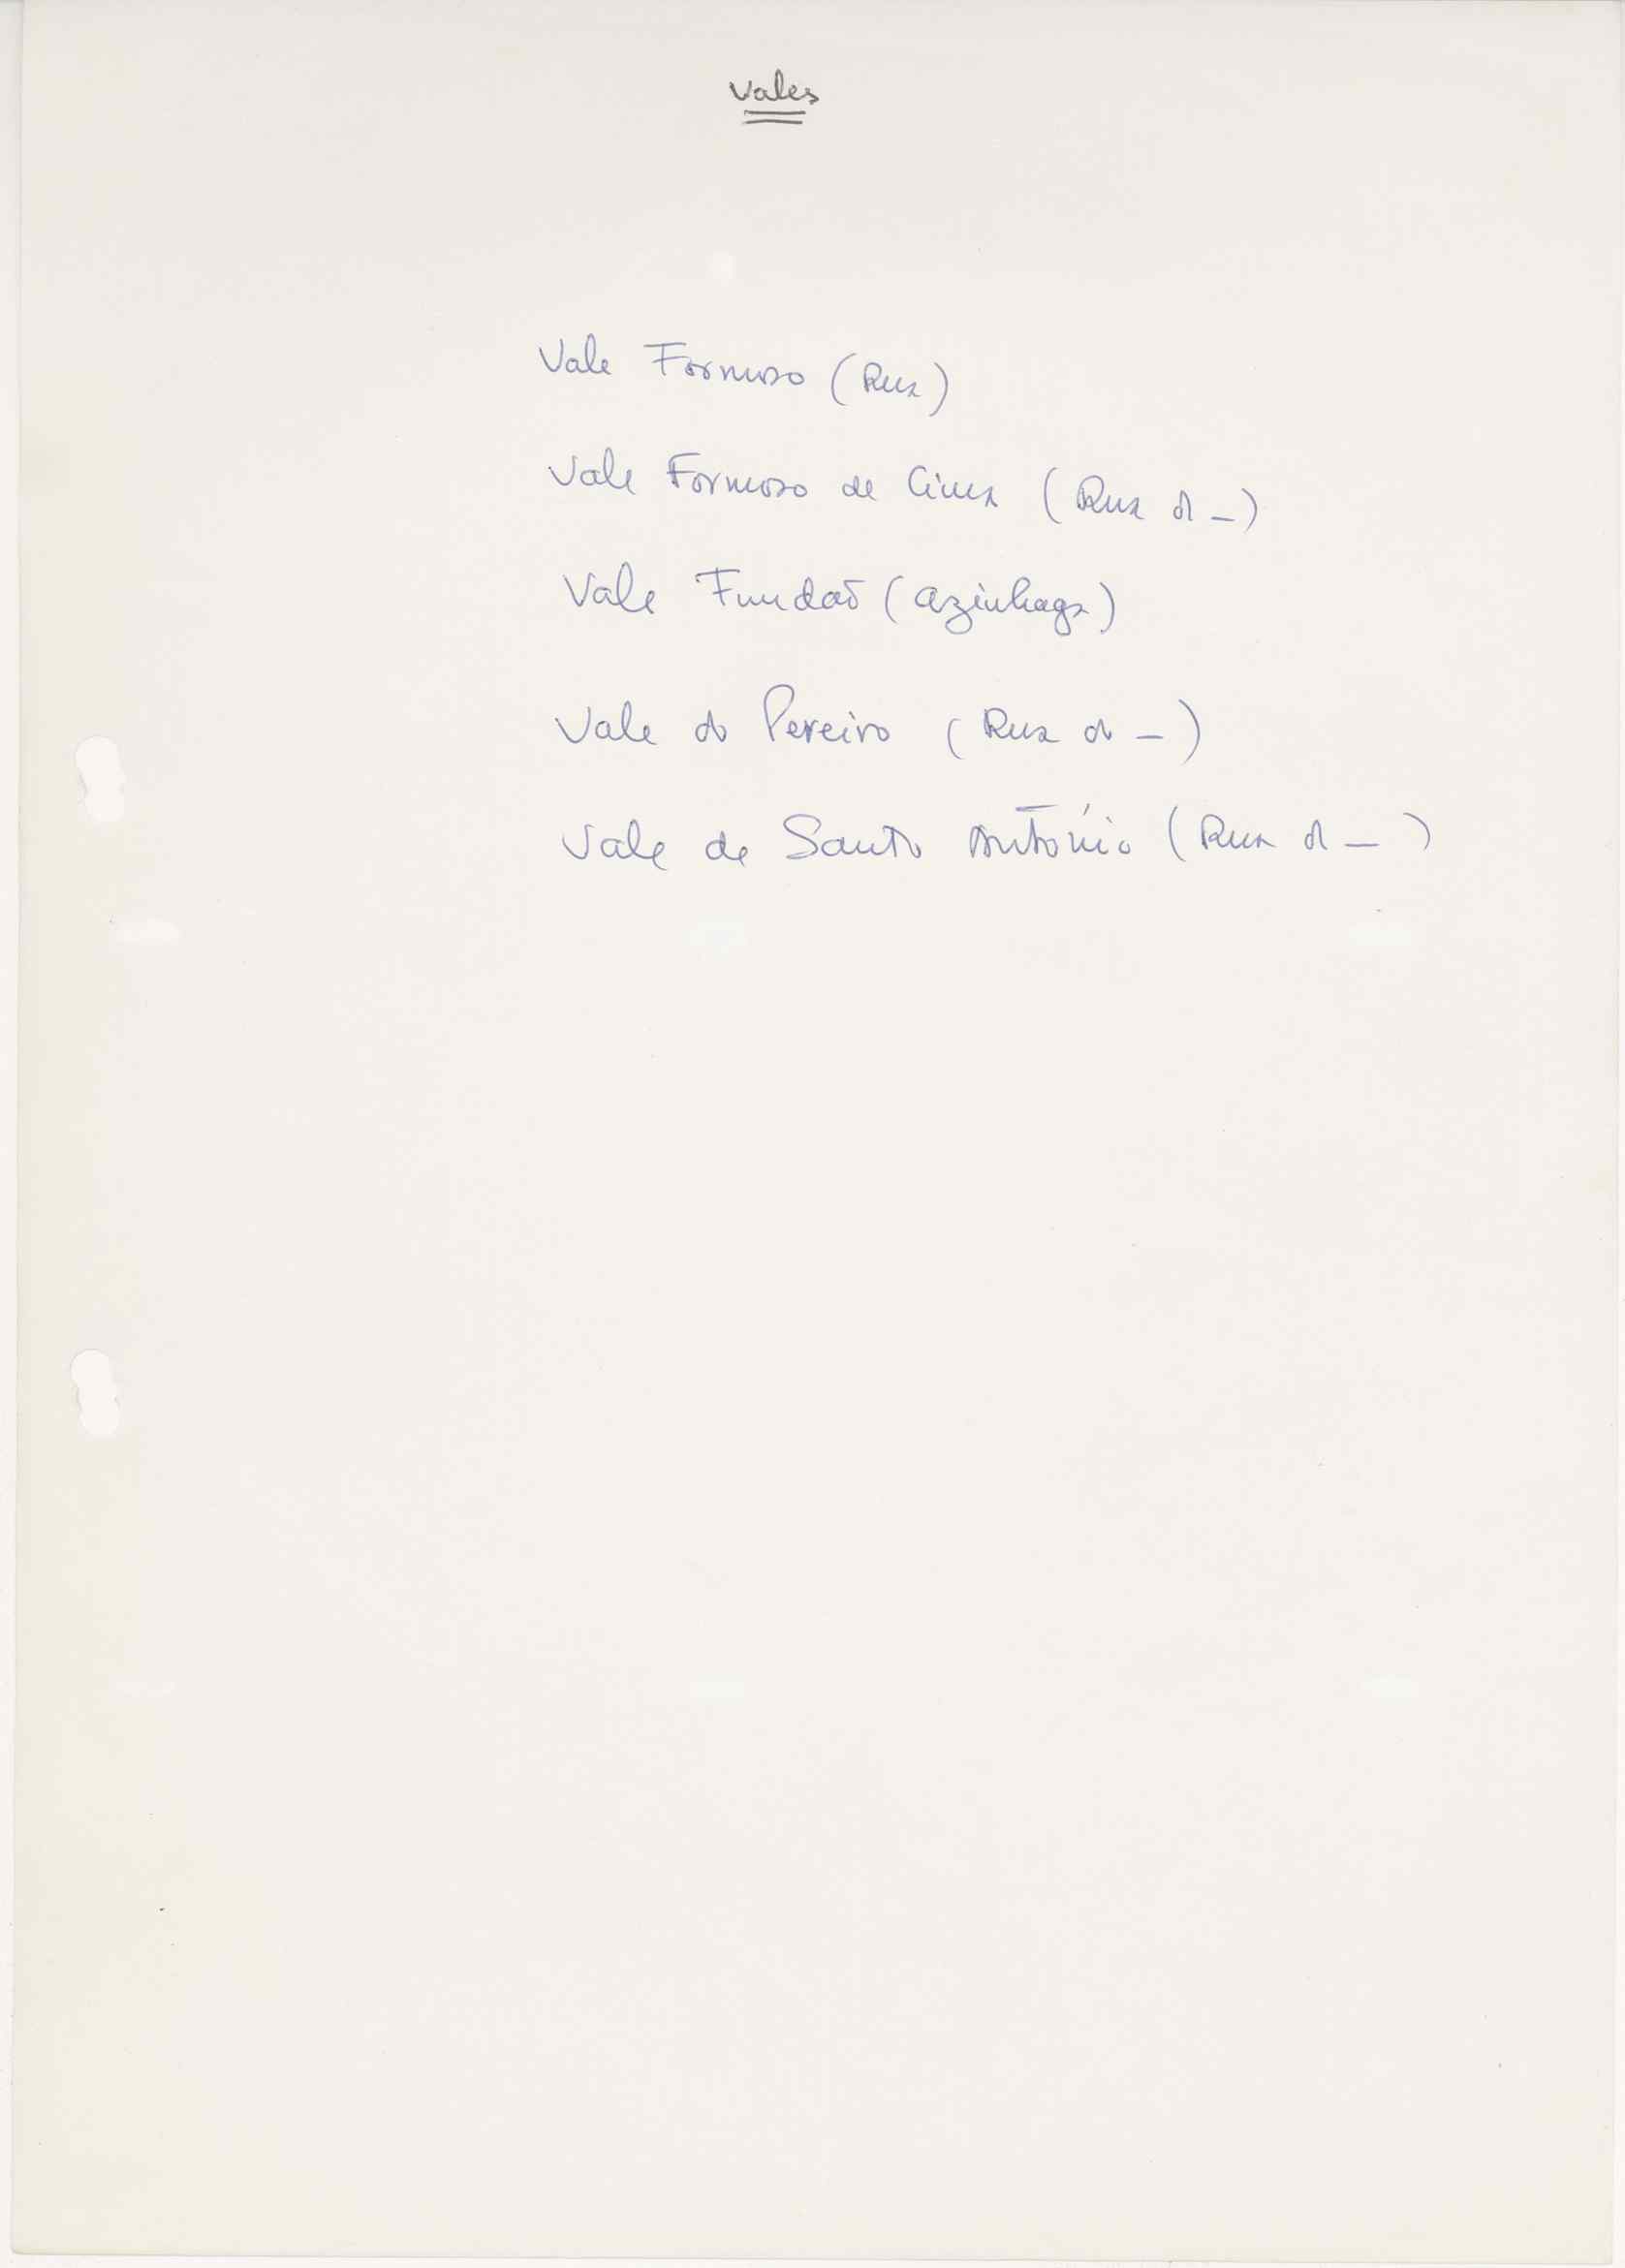 Vales
Vale Formoso (Rua)
Vale Formoso de Cima (Rua do —)
Vale Fundão (Azinhaga)
Vale do Pereiro (Rua do —)
Vale de Santo António (Rua do —)